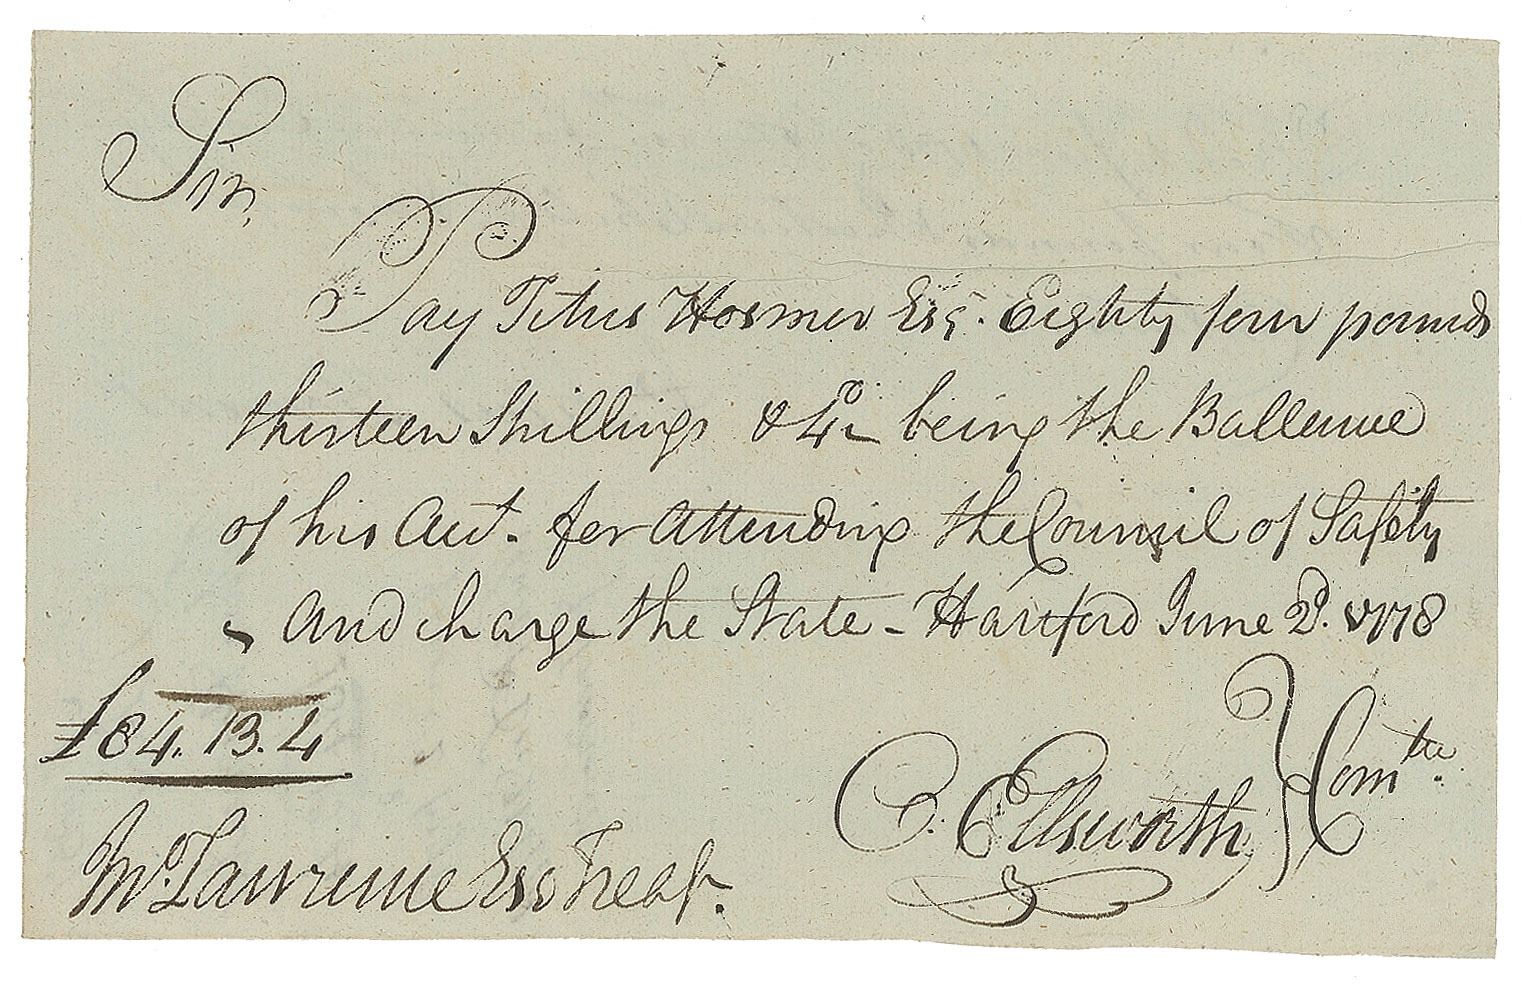 Sir,
Pay Titus Hosmer Esq. Eighty four pounds
thirteen Shillings & 4d being the Ballance
of his Acct. for attending the Council of Safety
and charge the State - Hartford June 2d. 1778
£84.13.4
O. Ellsworth } Comtee.
Mr. Lawrence Esq Treasr.